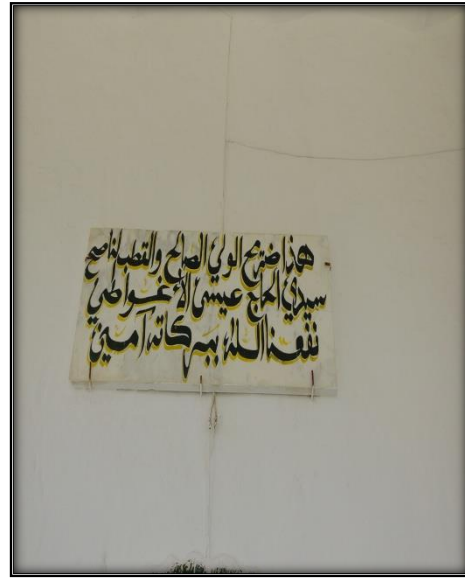 هذا ضريح الولي الصالح والقطب الناصح
سيدي الحاج عيسى الأغواطي
نفعنا الله ببركاته آمين